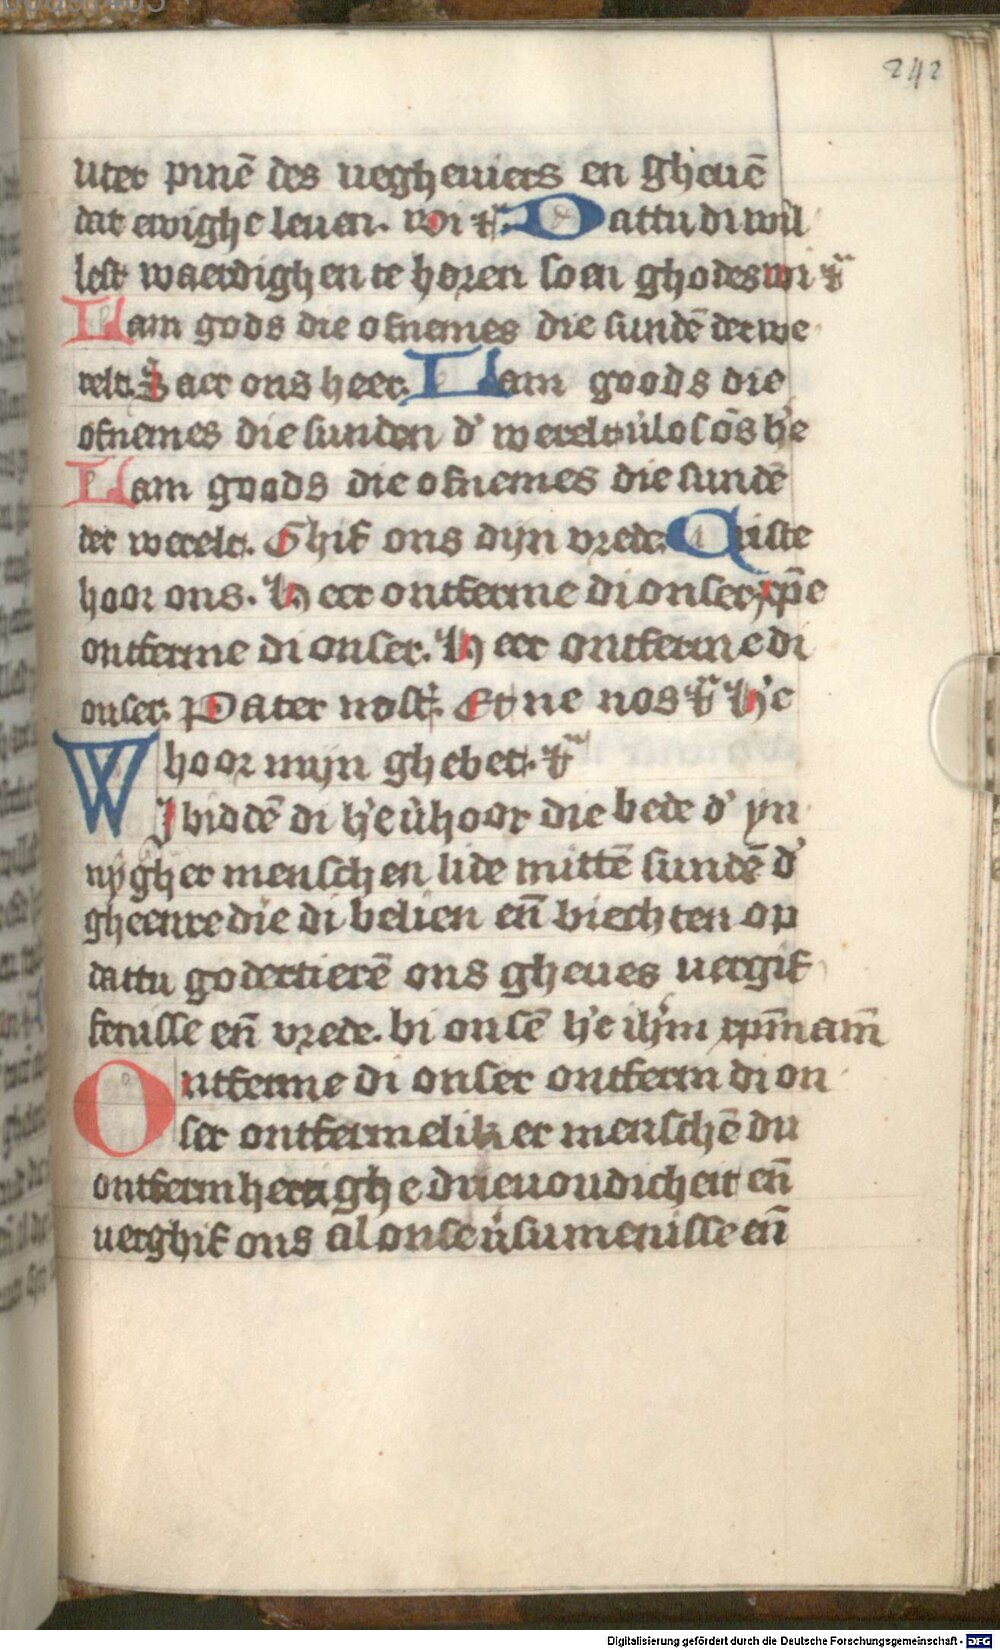 242
uter pinē des uegheuiers en gheuē
dat ewighe leuen. wi Dattu di wil
lest waerdighen te horen soen ghodes wi
Lam gods die ofnemes die sundē der we
relt. Saer ons heer. Lam goods die
ofnemes die sunden d' werelt v'los ōs h'e
Lam goods die ofnemes die sundē
der werelt. Ghif ons dyn vrede. Criste
hoor ons. Heer ontferme di onser, xpē
ontferme di onser. Heer ontferme di
onser. Pater nost'. Et ne nos H'e
hoor mijn ghebet.
WI biddē di h'e v'hoor die bede d' yn
nygher menschen lide mittē sundē d'
gheenre die di belien eñ biechten op
dattu godertierē ons gheues uergif
fenisse eñ vrede. bi onsē h'e ihm xpm am
Ontferme di onser ontferm di on
ser ontfermeliker menschē du
ontfermhertighe drieuoudicheit eñ
uerghif ons al onse v'sumenisse eñ
Digitalisierung gefördert durch die Deutsche Forschungsgemeinschaft - DFG